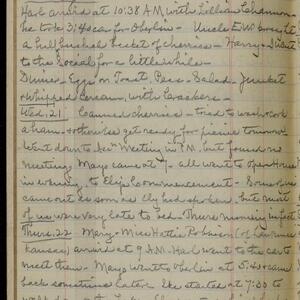 Harl arrived at 10:38 A.M. with Lillian
he took 3:40 car for Oberlin - Uncle E.W. brought
a half bushel basket of cherries - Harry & I went
to the Social for a little while -
Dinner - Eggs on Toast, Peas - Salad - Junket
& Whipped Cream, with Crackers.
Wed. 21 Canned cherries - tried to wash & cook
a ham - & otherwise get ready for picnic tomorrow
Went down to Meeting in P.M. but found no
meeting. Mays came at 7 - all went to Open House
in evening to Commencement -
came out as soon as Ely had spoken, but most
of us were very late to bed -
Thurs. 22 Mary - Miss Hattie Robinson (of Lawrence
Kansas) arrived at 9 A.M. Harl went to the cars
meet them - Mays went to Oberlin at 5:40 & came
back sometime later. He started at 7:30 to